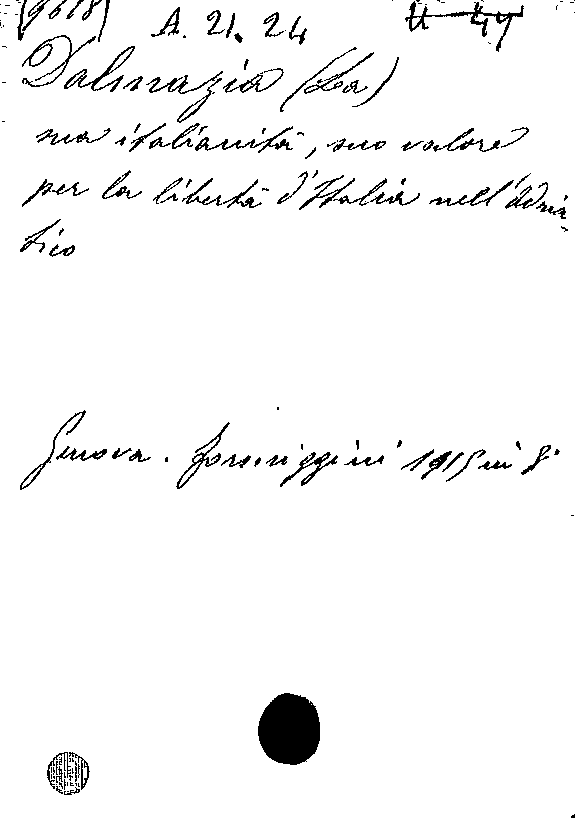 (9618) A. 21. 24
Dalmazia (La)
sua italianità, suo valore
per la libertà d'Italia nell'Adria-
tico
Genova. Formiggini 1915 in 8°